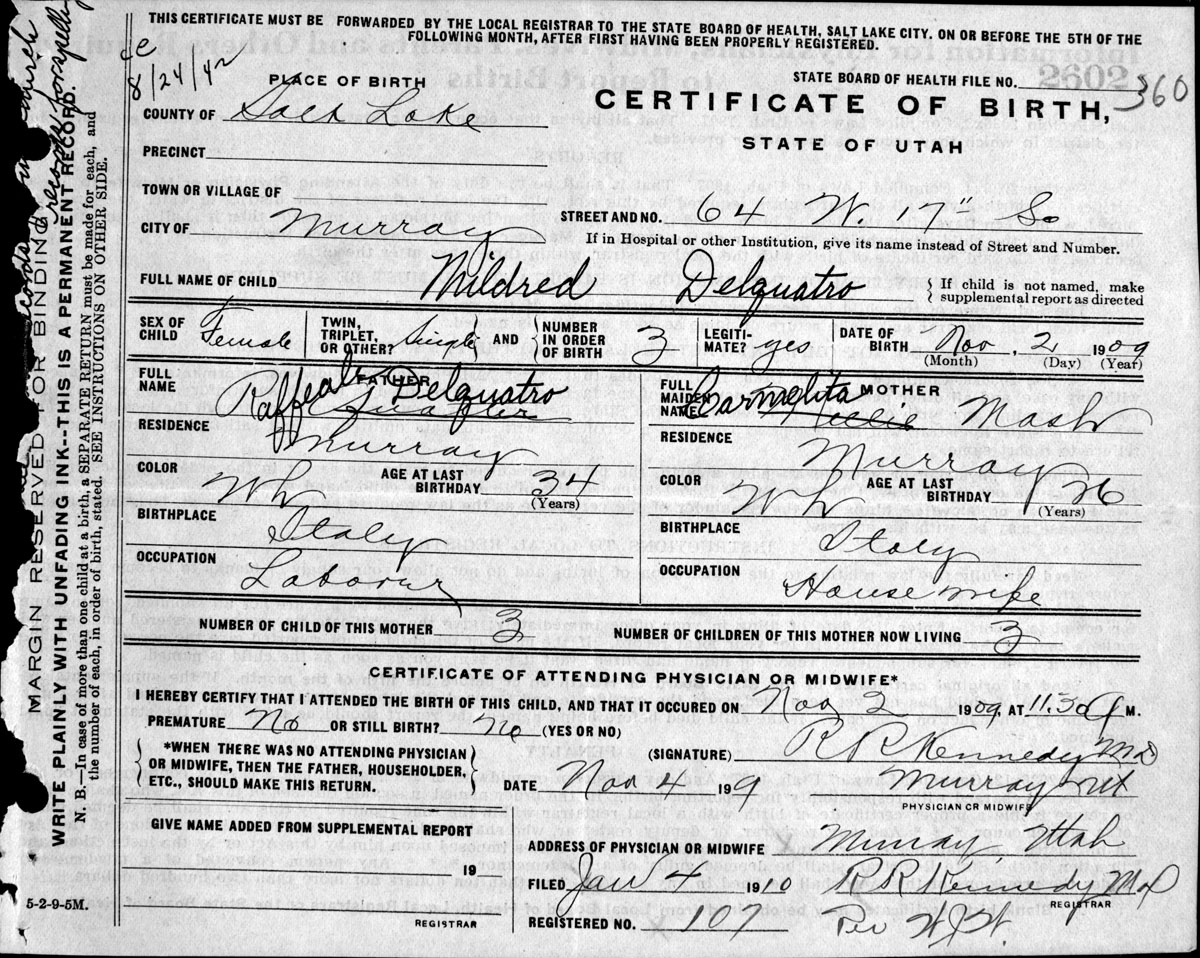 THIS CERTIFICATE MUST BE FORWARDED BY THE LOCAL REGISTRAR TO THE STATE BOARD OF HEALTH, SALT LAKE CITY. ON OR BEFORE THE 5TH OF THE
FOLLOWING MONTH, AFTER FIRST HAVING BEEN PROPERLY REGISTERED.
8/24/42
PLACE OF BIRTH
STATE BOARD OF HEALTH FILE NO. 2602
360
COUNTY OF Salt Lake
CERTIFICATE OF BIRTH,
STATE OF UTAH
PRECINCT
TOWN OR VILLAGE OF
STREET AND NO. 64 W. 17" So
CITY OF Murray
If in Hospital or other Institution, give its name instead of Street and Number.
FULL NAME OF CHILD Mildred Delquatro
If child is not named, make
supplemental report as directed
SEX OF CHILD Female
TWIN, TRIPLET, OR OTHER? Single AND NUMBER IN ORDER OF BIRTH 3
LEGITI-MATE? yes
DATE OF BIRTH Nov. 2 1909
(Month) (Day) (Year)
FATHER
FULL NAME Delquatro
RESIDENCE Murray
COLOR Wh AGE AT LAST BIRTHDAY 34
(Years)
BIRTHPLACE Italy
OCCUPATION Labour
MOTHER
FULL MAIDEN NAME Carmelita Nellie Mash
RESIDENCE Murray
COLOR Wh AGE AT LAST BIRTHDAY 26
(Years)
BIRTHPLACE Italy
OCCUPATION House wife
NUMBER OF CHILD OF THIS MOTHER 3
NUMBER OF CHILDREN OF THIS MOTHER NOW LIVING 3
CERTIFICATE OF ATTENDING PHYSICIAN OR MIDWIFE*
I HEREBY CERTIFY THAT I ATTENDED THE BIRTH OF THIS CHILD, AND THAT IT OCCURED ON Nov 2 1909, AT 11.30 M.
PREMATURE No OR STILL BIRTH? No (YES OR NO)
*WHEN THERE WAS NO ATTENDING PHYSICIAN
OR MIDWIFE, THEN THE FATHER, HOUSEHOLDER,
ETC., SHOULD MAKE THIS RETURN.
(SIGNATURE) R R Kennedy MD
DATE Nov 4 199 Murray Ut
PHYSICIAN OR MIDWIFE
GIVE NAME ADDED FROM SUPPLEMENTAL REPORT
19
REGISTRAR
ADDRESS OF PHYSICIAN OR MIDWIFE Murray, Utah
FILED Jan 4 1910 R R Kennedy MD
REGISTRAR
REGISTERED NO. 107 Per
5-2-9-5M.
MARGIN RESERVED FOR BINDING
WRITE PLAINLY WITH UNFADING INK--THIS IS A PERMANENT RECORD.
N. B.—In case of more than one child at a birth, a SEPARATE RETURN must be made for each, and
the number of each, in order of birth, stated. SEE INSTRUCTIONS ON OTHER SIDE.